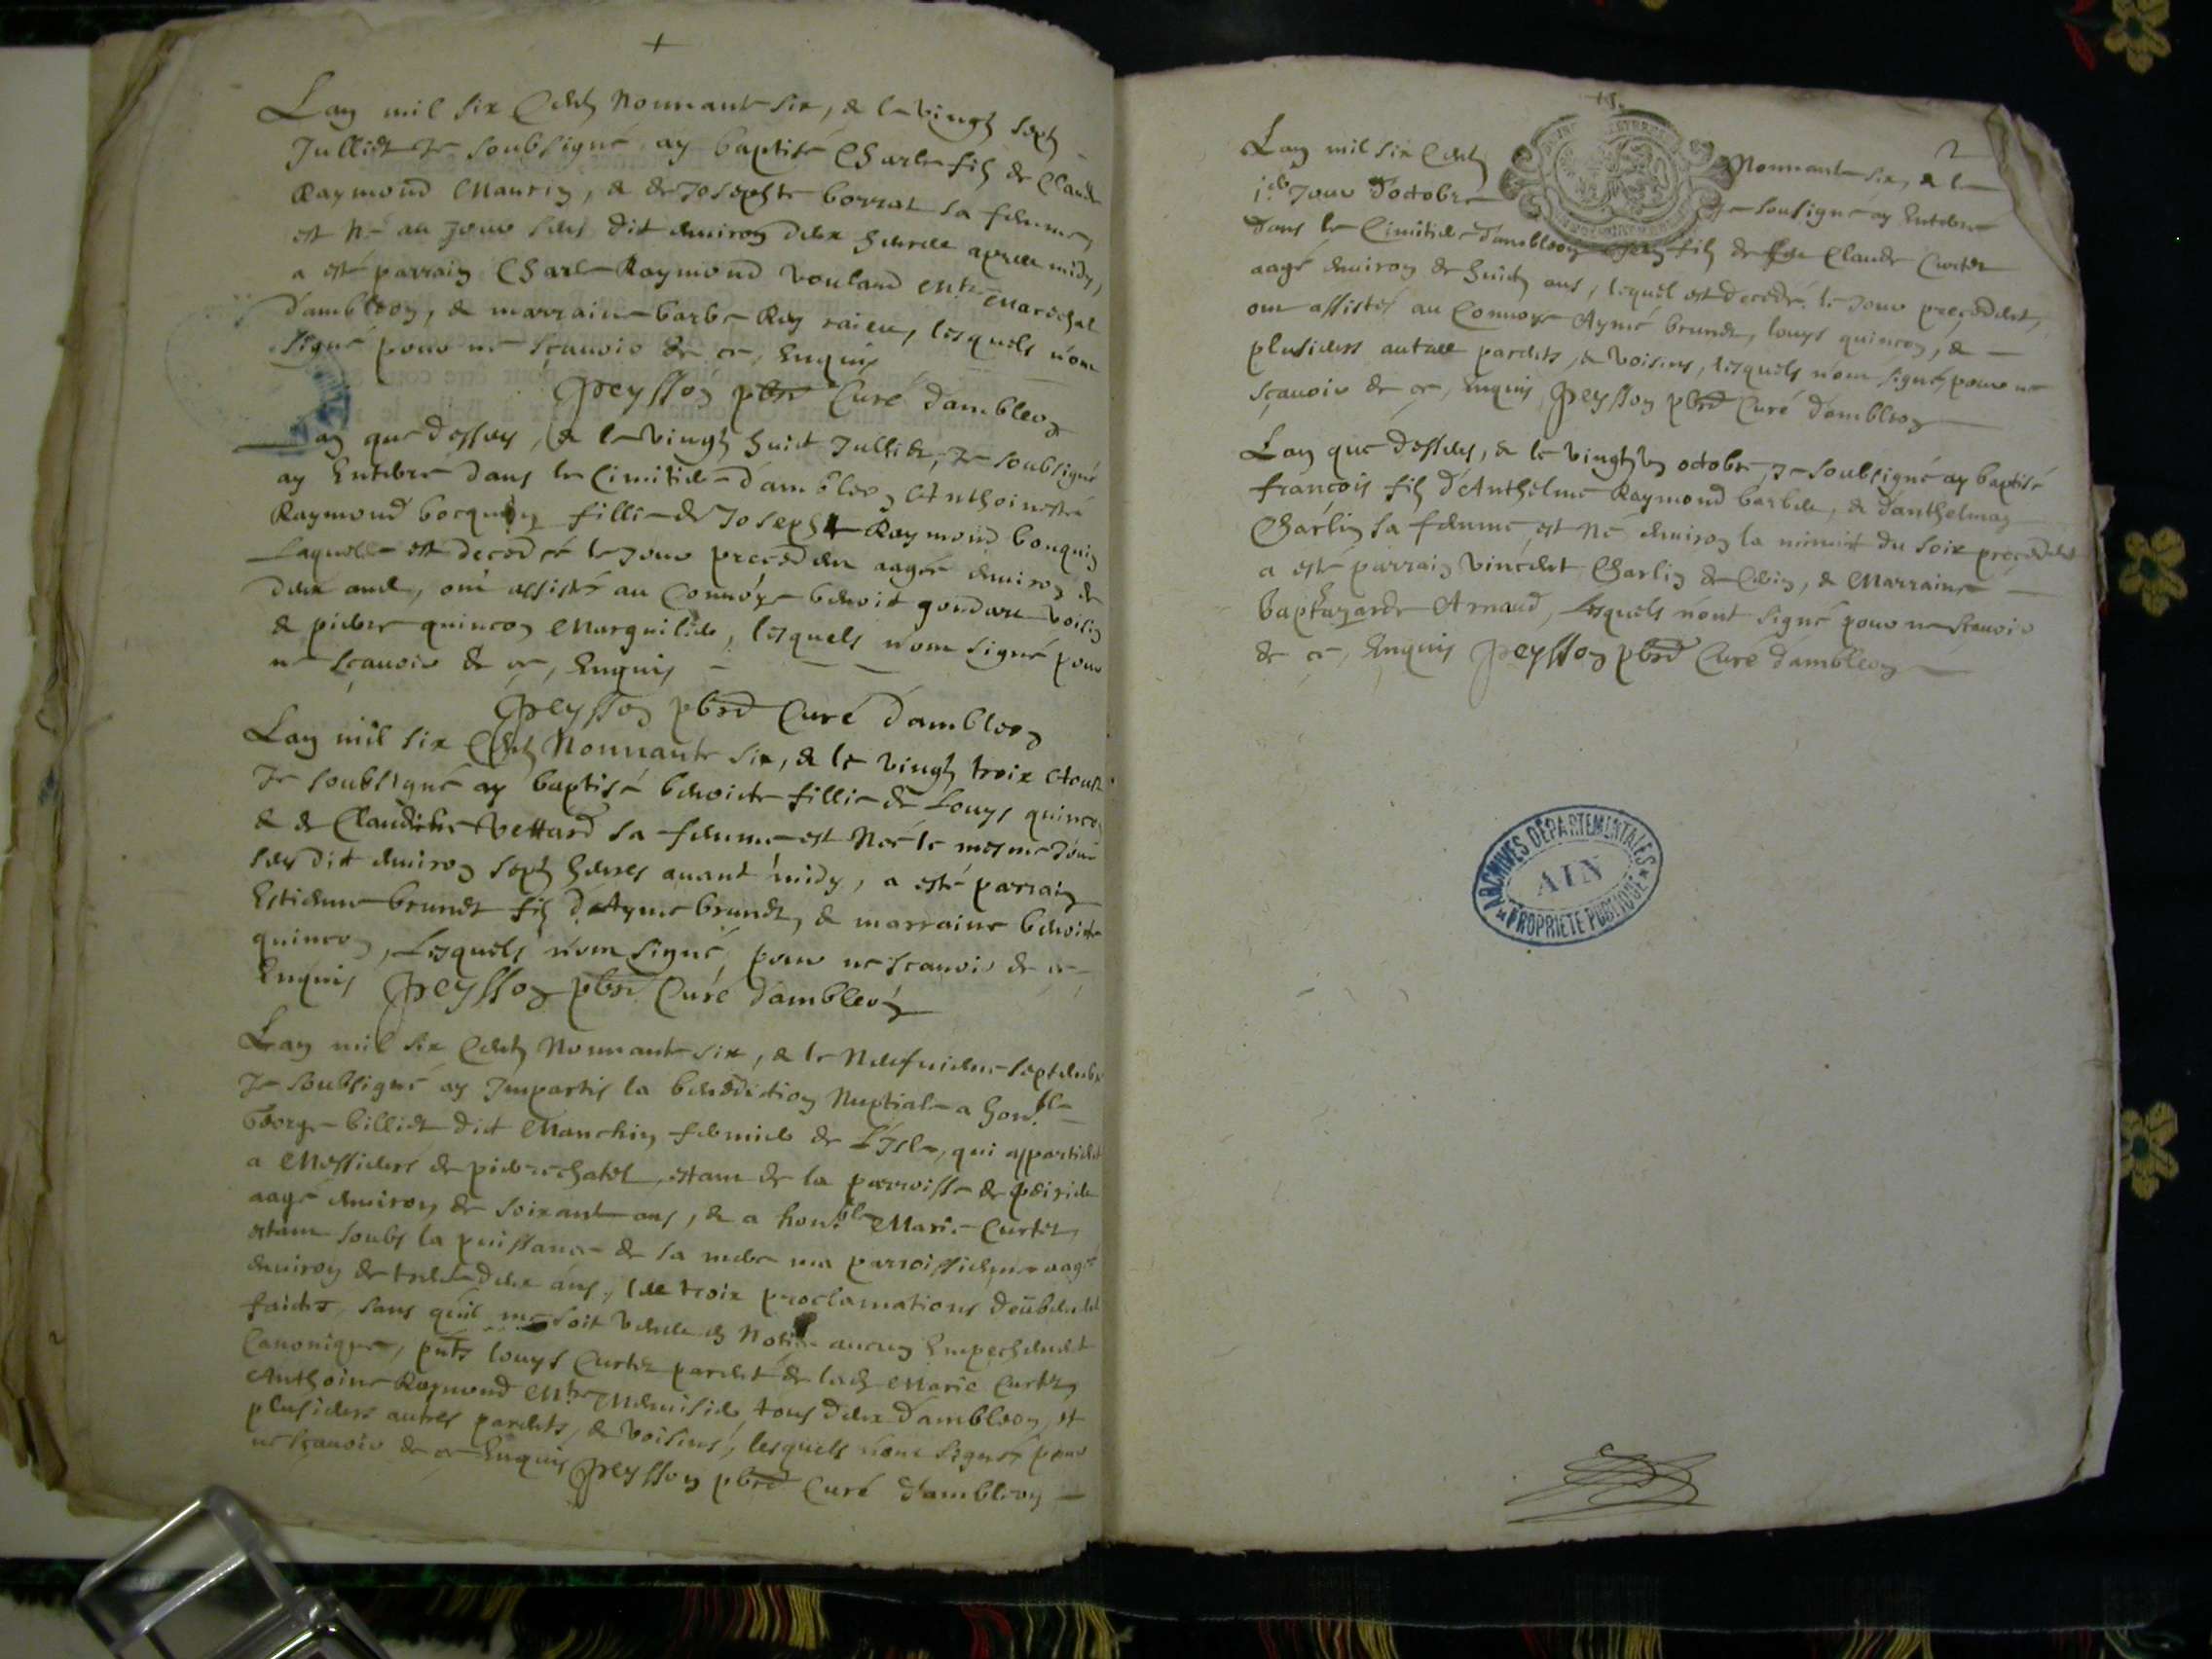 +
Lan mil six Cents Nonnante six, & le vingt sept
Jullict Je soubsigné ay baptisé Charle fils de Claude
Raymond Maurin, & de Josephte borrat sa femme
est né au jour sus dit environ deux heures apres midy,
a esté parrain Charle Raymond Mtre Marechal
d'ambleon, & marraine barbe Rey, lesquels n'ont
signé pour ne sçavoir de ce, Enquis
Peysson pbre Curé d'ambleon
Lan que dessus, & le vingt huict Jullict, Je soubsigné
ay Enterre dans le Cimitiere d'ambleon Anthoinette
Raymond bocquin fillie de Joseph Raymond bouquin
Laquelle est decedée le jour precedent aagée environ de
deux ans, ont assisté au Convoye benoit voisin
& pierre quincon Marguilier, lesquels n'ont signé pour
ne sçavoir de ce, Enquis
Peysson pbre Curé d'ambleon
Lan mil six Cents Nonnante six, & le vingt troix Aoust
Je soubsigné ay baptisé benoicte fillie de Louys quincon
& de Claudine Vettard sa femme est Née le mesme Jour
sus dit environ sept heures avant midy, a esté parrain
Estienne brunet fils d'Ayme brunet, & marraine benoicte
quincon, Lesquels n'ont signé, pour ne scavoir de ce
Enquis Peysson pbre Curé d'ambleon
Lan mil six Cents Nonnante six, & le Neufvieme septembre
Je soubsigné ay Impartis la benediction Nuptiale a honble
George billiet dit Manchin fermier de L'Isle, qui appartient
a Messieurs de pierrechatel, estant de la parroisse de
aagé environ de soixante ans, & a honble Marie Curtet
estant soubs la puissance de sa mere ma parroissienne aagée
environ de trente deux ans, les troix proclamations deübement
faictes, sans qu'il me soit venu en Notice aucun Empechement
Canonique, pnts louys Curtet parent de lad Marie Curtet
Anthoine Raymond Mtre Menuisier, tous deux d'ambleon, et
plusieurs autres parents, & voisins, lesquels n'ont signés pour
ne sçavoir de ce Enquis Peysson pbre Curé d'ambleon
2
Lan mil six Cents Nonnante six, & le
Jour d'octobre Je sousigné ay Enterre
dans le Cimitiere d'ambleon fils de feu Claude Curtet
aagé environ de huict ans, lequel est decedé le jour precedent,
ont assistés au Convoye Aymé brunet, louys quincon, &
plusieurs autres parents, & voisins, lesquels n'ont signé, pour ne
sçavoir de ce, Enquis Peysson pbre Curé d'ambleon
Lan que dessus, & le vingt un octobre je soubsigné ay baptisé
françois fils d'Anthelme Raymond barbier, & d'anthelma
Charlin sa femme est Né environ la minuit du soir precedent
a esté parrain vincent Charlin de Cuin, & Marraine
Arnaud, Lesquels n'ont signé pour ne scavoir
de ce, Enquis Peysson pbre Curé d'ambleon
ARCHIVES DÉPARTEMENTALES
AIN
PROPRIÉTÉ PUBLIQUE